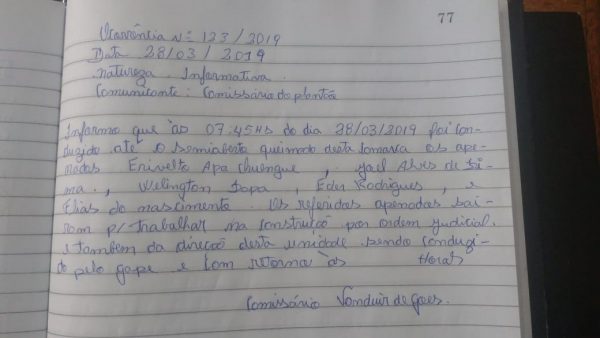 77
Ocorrência Nº 123 / 2019
Data 28/03 / 2019
natureza Informativa.
Comunicante: Comissário do plantão
Informo que às 07:45Hs do dia 28/03/2019 foi con-
duzido até o semiaberto queimado desta comarca os ape-
nados Erivelto Apa , Jael Alves de Li-
ma., Welington Sopa, Eder Rodrigues, e
Elias do nascimento. Os referidos apenados sai-
ram p/ trabalhar na construção por ordem judicial.
e também da direção desta unidade sendo conduzi-
do pelo gape e com retorno às Horas
Comissário de Goes.